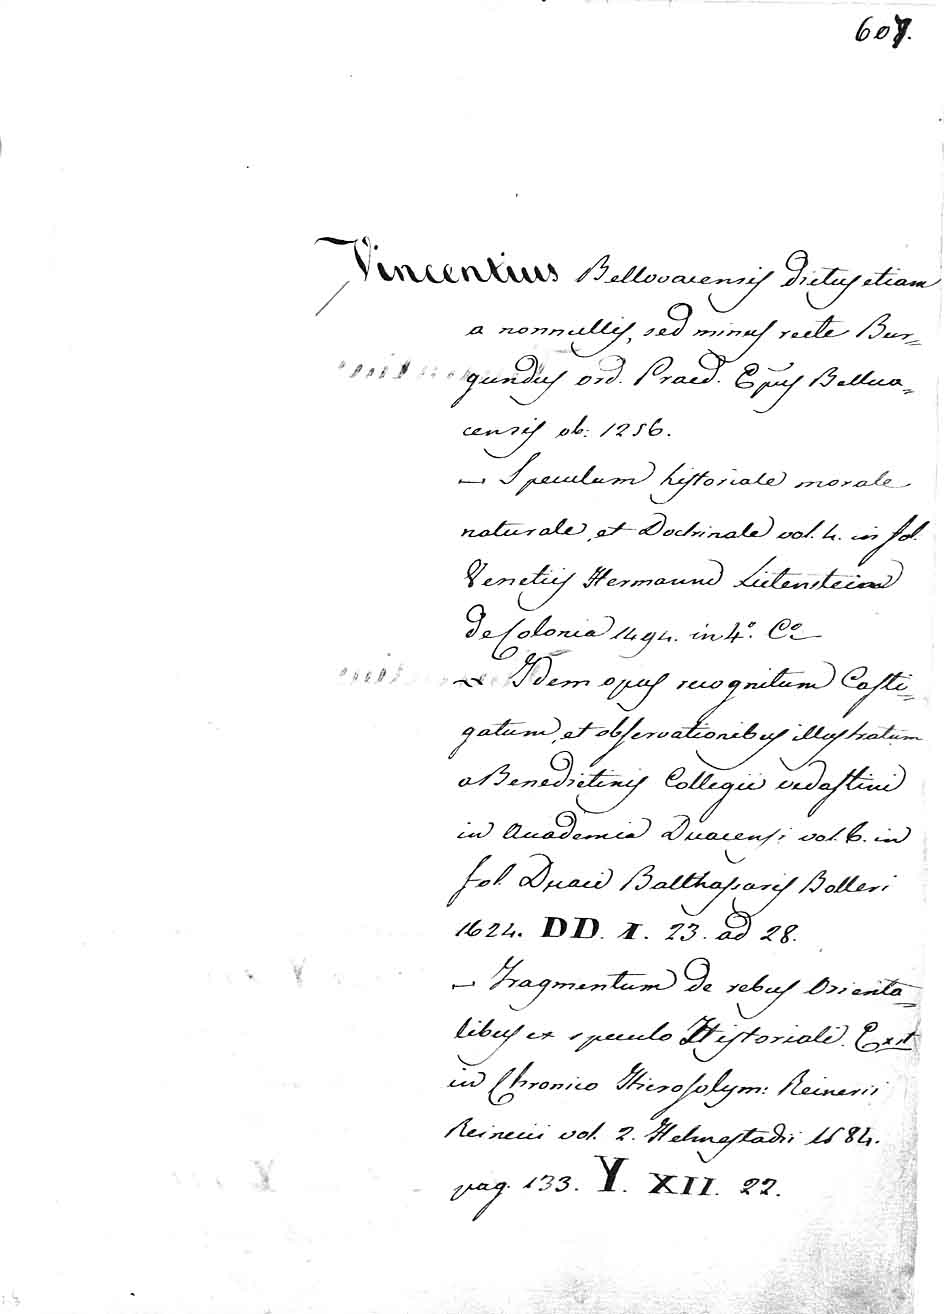 607.
Vincentius Bellovacensis dictus etiam
a nonnullis, sed minus recte Bur=
gundus ord. Praed. Epus Bellua=
censis ob: 1256.
— Speculum historiale morale
naturale, et Doctrinale vol. 4. in fol.
Venetiis Hermanni Lictenstein
de Colonia 1494. in 4.° Co
— Idem opus recognitum Casti=
gatum, et observationibus illustratum
a Benedictinis Collegii vedastini
in Academia Duacensi vol. 6. in
fol. Duaci Balthasaris Belleri
1624. DD. I. 23. ad 28.
— Fragmentum de rebus Orienta=
libus ex speculo Historiali. Exst
in Chronico Hierosolym: Reinerii
Reineccii vol. 2. Helmestadii 1584.
pag. 133. Y. XII. 22.